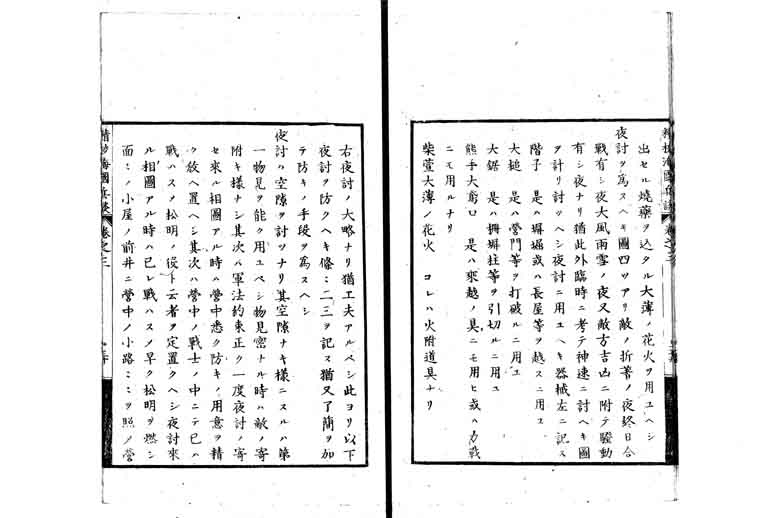 出セル燒藥ヲ込タル大薄ノ花火ヲ用ユヘシ
夜討ヲ爲スヘキ圖四ツアリ敵ノ折著ノ夜終日合
戰有シ夜大風雨雪ノ夜又敵方吉凶ニ附テ騷動
有シ夜ナリ猶此外臨時ニ考テ神速ニ討ヘキ圖
ヲ計リ討ツヘシ夜討ニ用ユヘキ器械左ニ記ス
階子 是ハ塀堀或ハ長屋等ヲ越スニ用ユ
大槌 是ハ營門等ヲ打破ルニ用ユ
大鋸 是ハ柵塀柱等ヲ引切ルニ用ユ
熊手大 是ハ乘越ノ具ニモ用ヒ或ハ力戰
ニモ用ルナリ
柴萱大薄ノ花火 コレハ火附道具ナリ
右夜討ノ大略ナリ猶工夫アルベシ此ヨリ以下
夜討ヲ防クヘキ條二三ヲ記ス猶又了簡ヲ加
テ防キノ手段ヲ爲スヘシ
夜討ハ空隙ヲ討ツナリ其空隙ナキ樣ニスルハ第
一物見ヲ能ク用ユベシ物見密ナル時ハ敵ノ寄
附キ樣ナシ其次ハ軍法約束正ク一度夜討ノ寄
セ來ル相圖アル時ハ營中悉ク防キノ用意ヲ精
ク敎ヘ置ヘシ其次ハ營中ノ戰士ノ中ニテ已ハ
戰ハスノ松明ノ役ト云者ヲ定置クヘシ夜討來
ル相圖アル時ハ已レ戰ハスノ早ク松明ヲ燃シ
面ミノ小屋ノ前井ニ營中ノ小路ミミヲ照ノ營
精校海國兵談 卷之三
精校海國兵談 卷之三